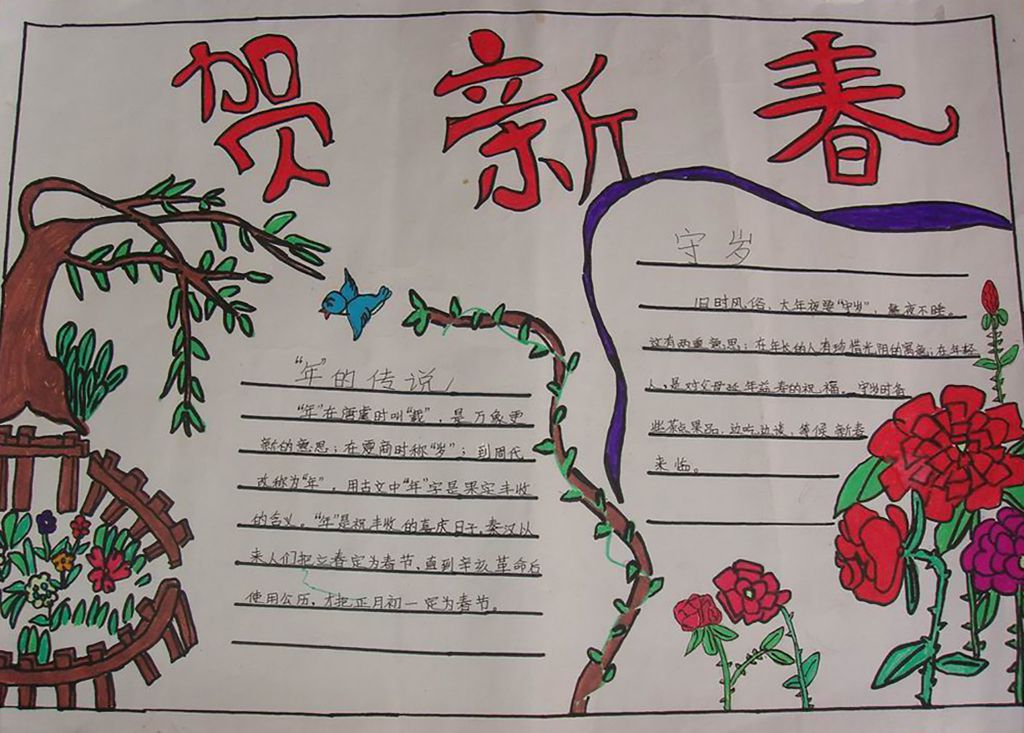 贺新春
"年"的传说
"年"在唐虞时叫"载",是万象更
新的意思;在夏商时称"岁";到周代
改称为"年",用古文中"年"字是果定丰收
的含义。"年"是祝丰收的喜庆日子,秦汉以
来人们把立春定为春节,直到辛亥革命后
使用公历,才把正月初一定为春节。
守岁
旧时风俗,大年夜要"守岁",整夜不睡。
这有两重意思:在年长的人有珍惜光阴的寓意;在年轻
人,是对父母延年益寿的祝福。守岁时备
些茶点果品,边吃边谈,等候新春
来临。